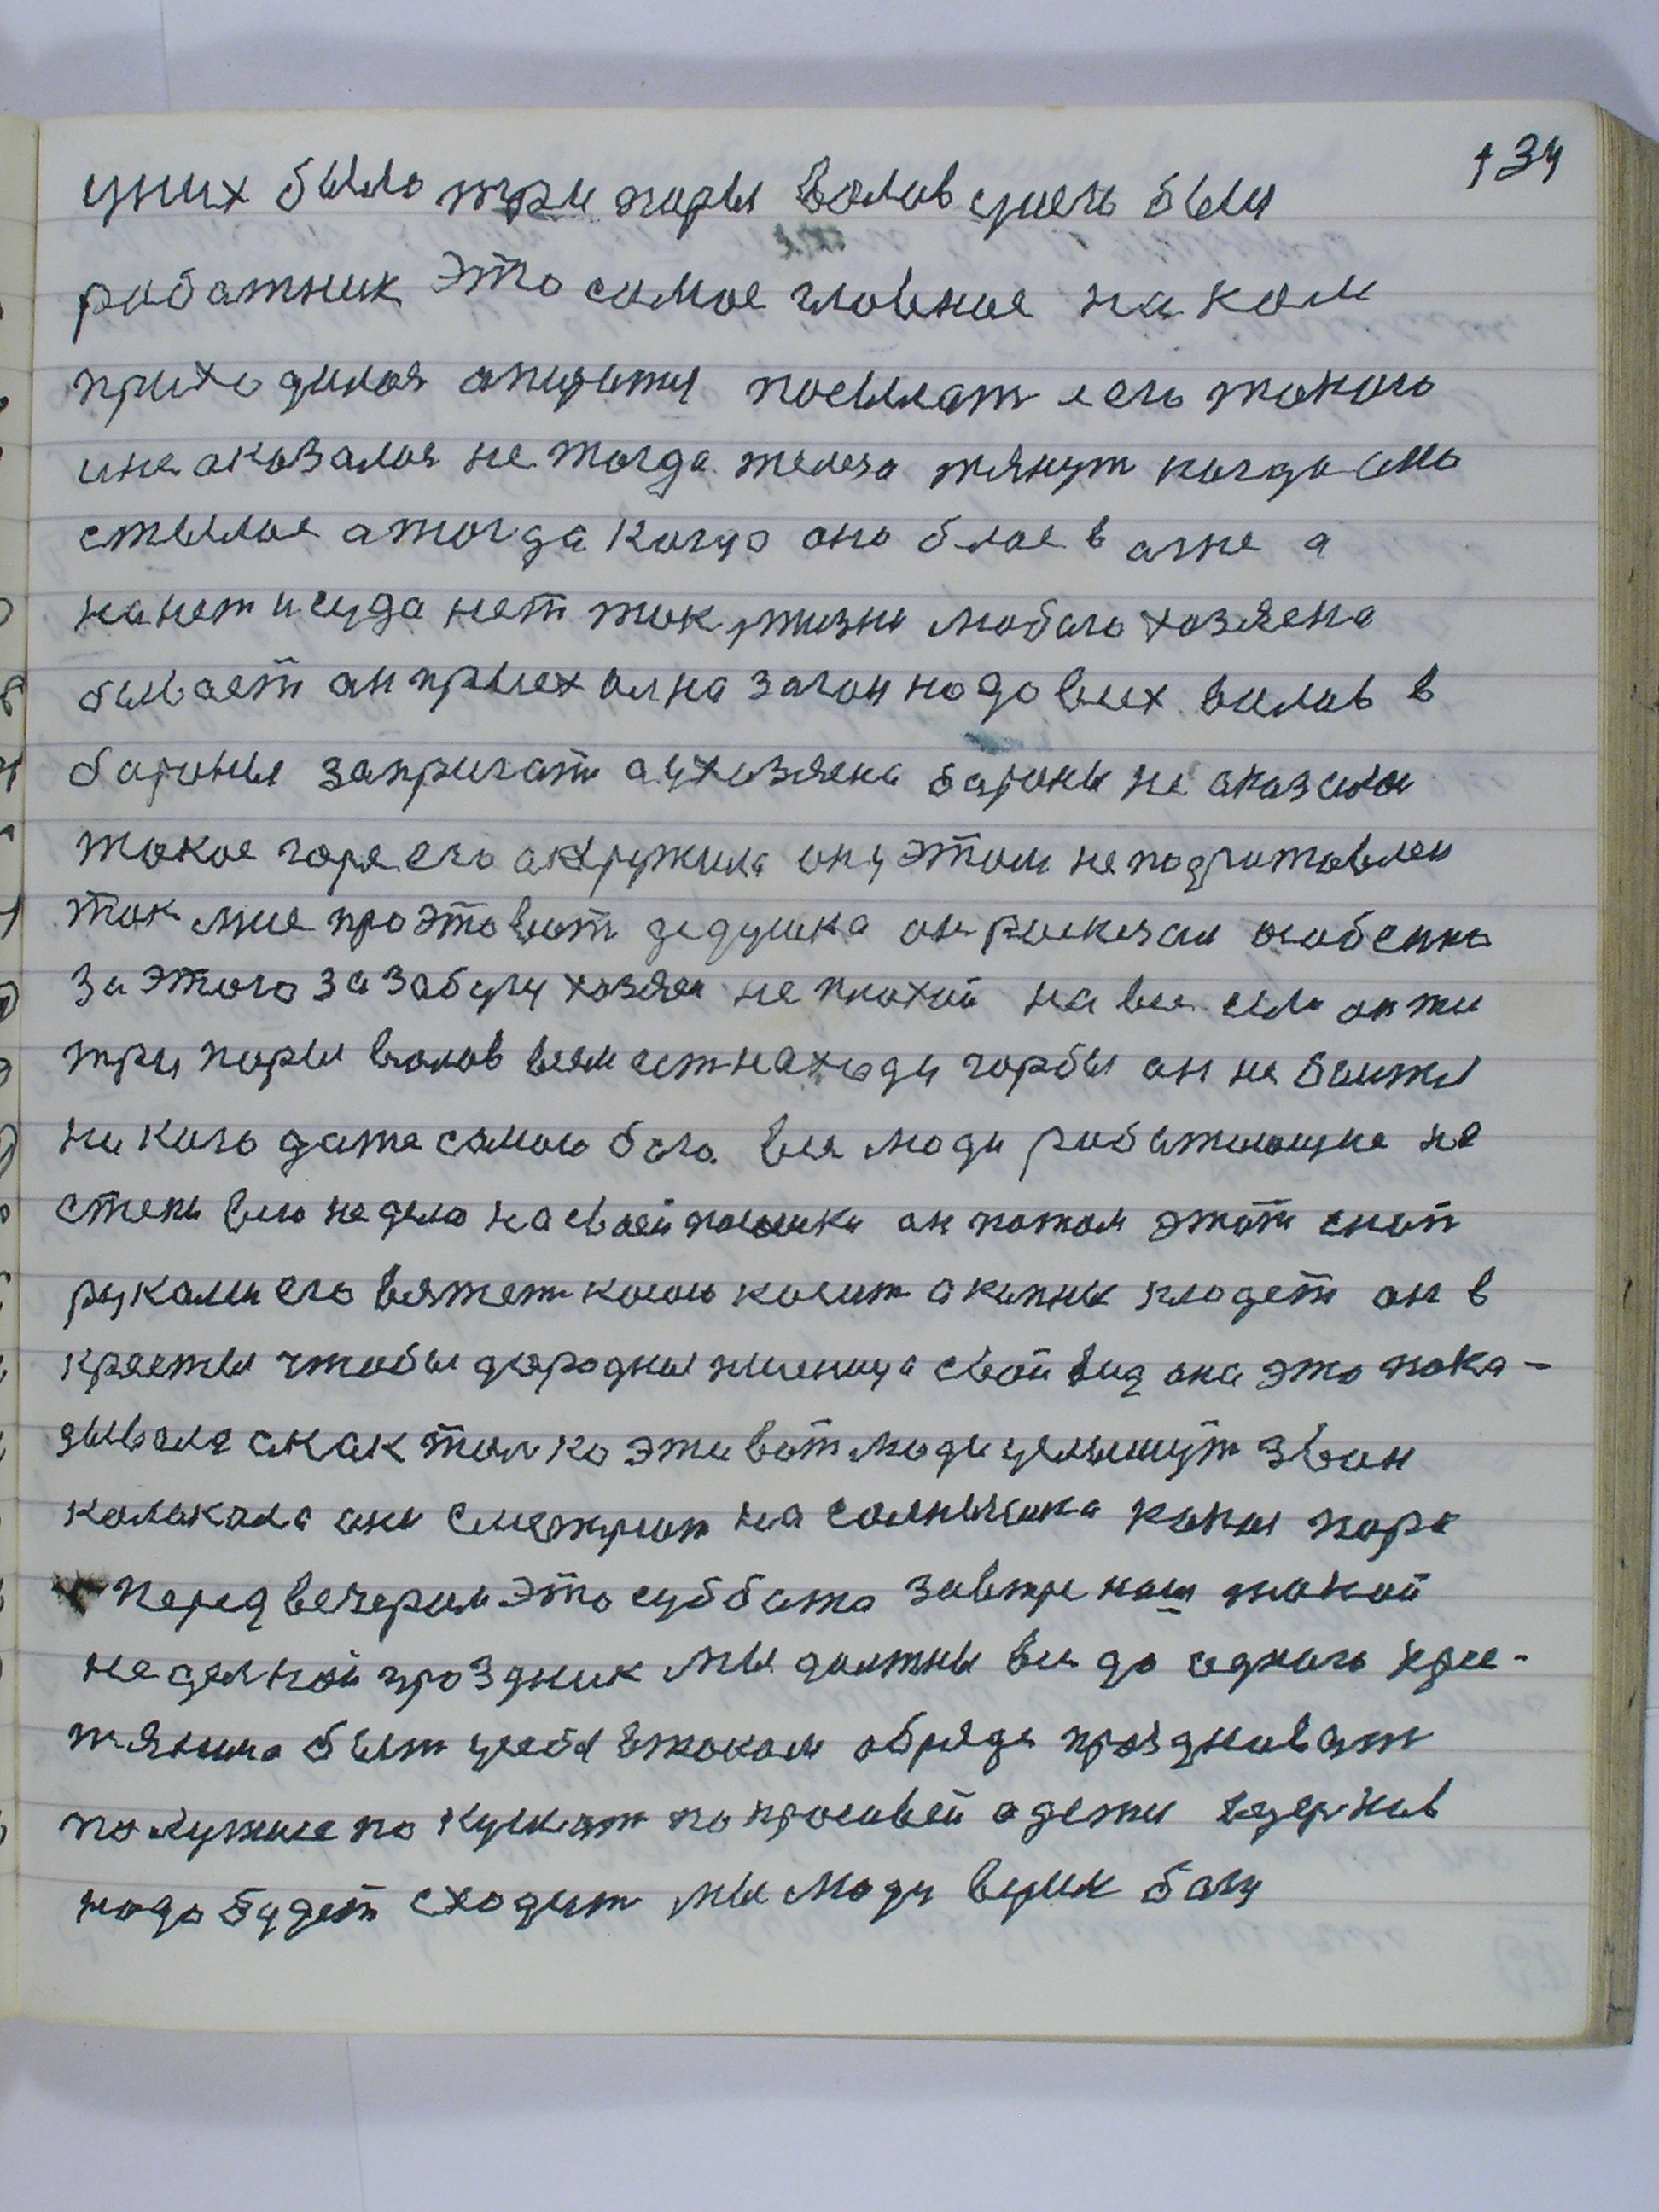 134
уних было три пары волов унего был
работник это самое главное на ком
приходилоя опиратця посылат еего такого
ине оказалоя не тогда железа тянут когда оно
стылое а тогда когда оно блое в огне а
на нет и суда нет так, жизни любого хозяена
бывает он приехал на загон надо всех волов в
бароны запригат а ухозяена бароны не оказалои
такое горе его окружила он у этом не подготовлен
так мне про это вот дедушка он расказал особенна
за этого за забулу хозяен не плохой на все село он жи
три пары волов всем естнаходи горбы он не боитця
не кого даже самого бога все люди работающие не
степи всю неделю на своей полоски он потом этот сноп
руками его вяжет косою косит а копны кладет он в
кресты чтобы дородны пшеница свой вид она это пока-
зывала а как толко эти вот люди услышут звон
колокола они смотрют на солнышка копы пора
перед вечером это суббота завтре наш такой
неделной праздник мы должны все до одного крес-
тянина быт усебя втаком обряде празноват
полутше по кушат по просивей одетця вцерков
надо будет сходит мы люди верим богу